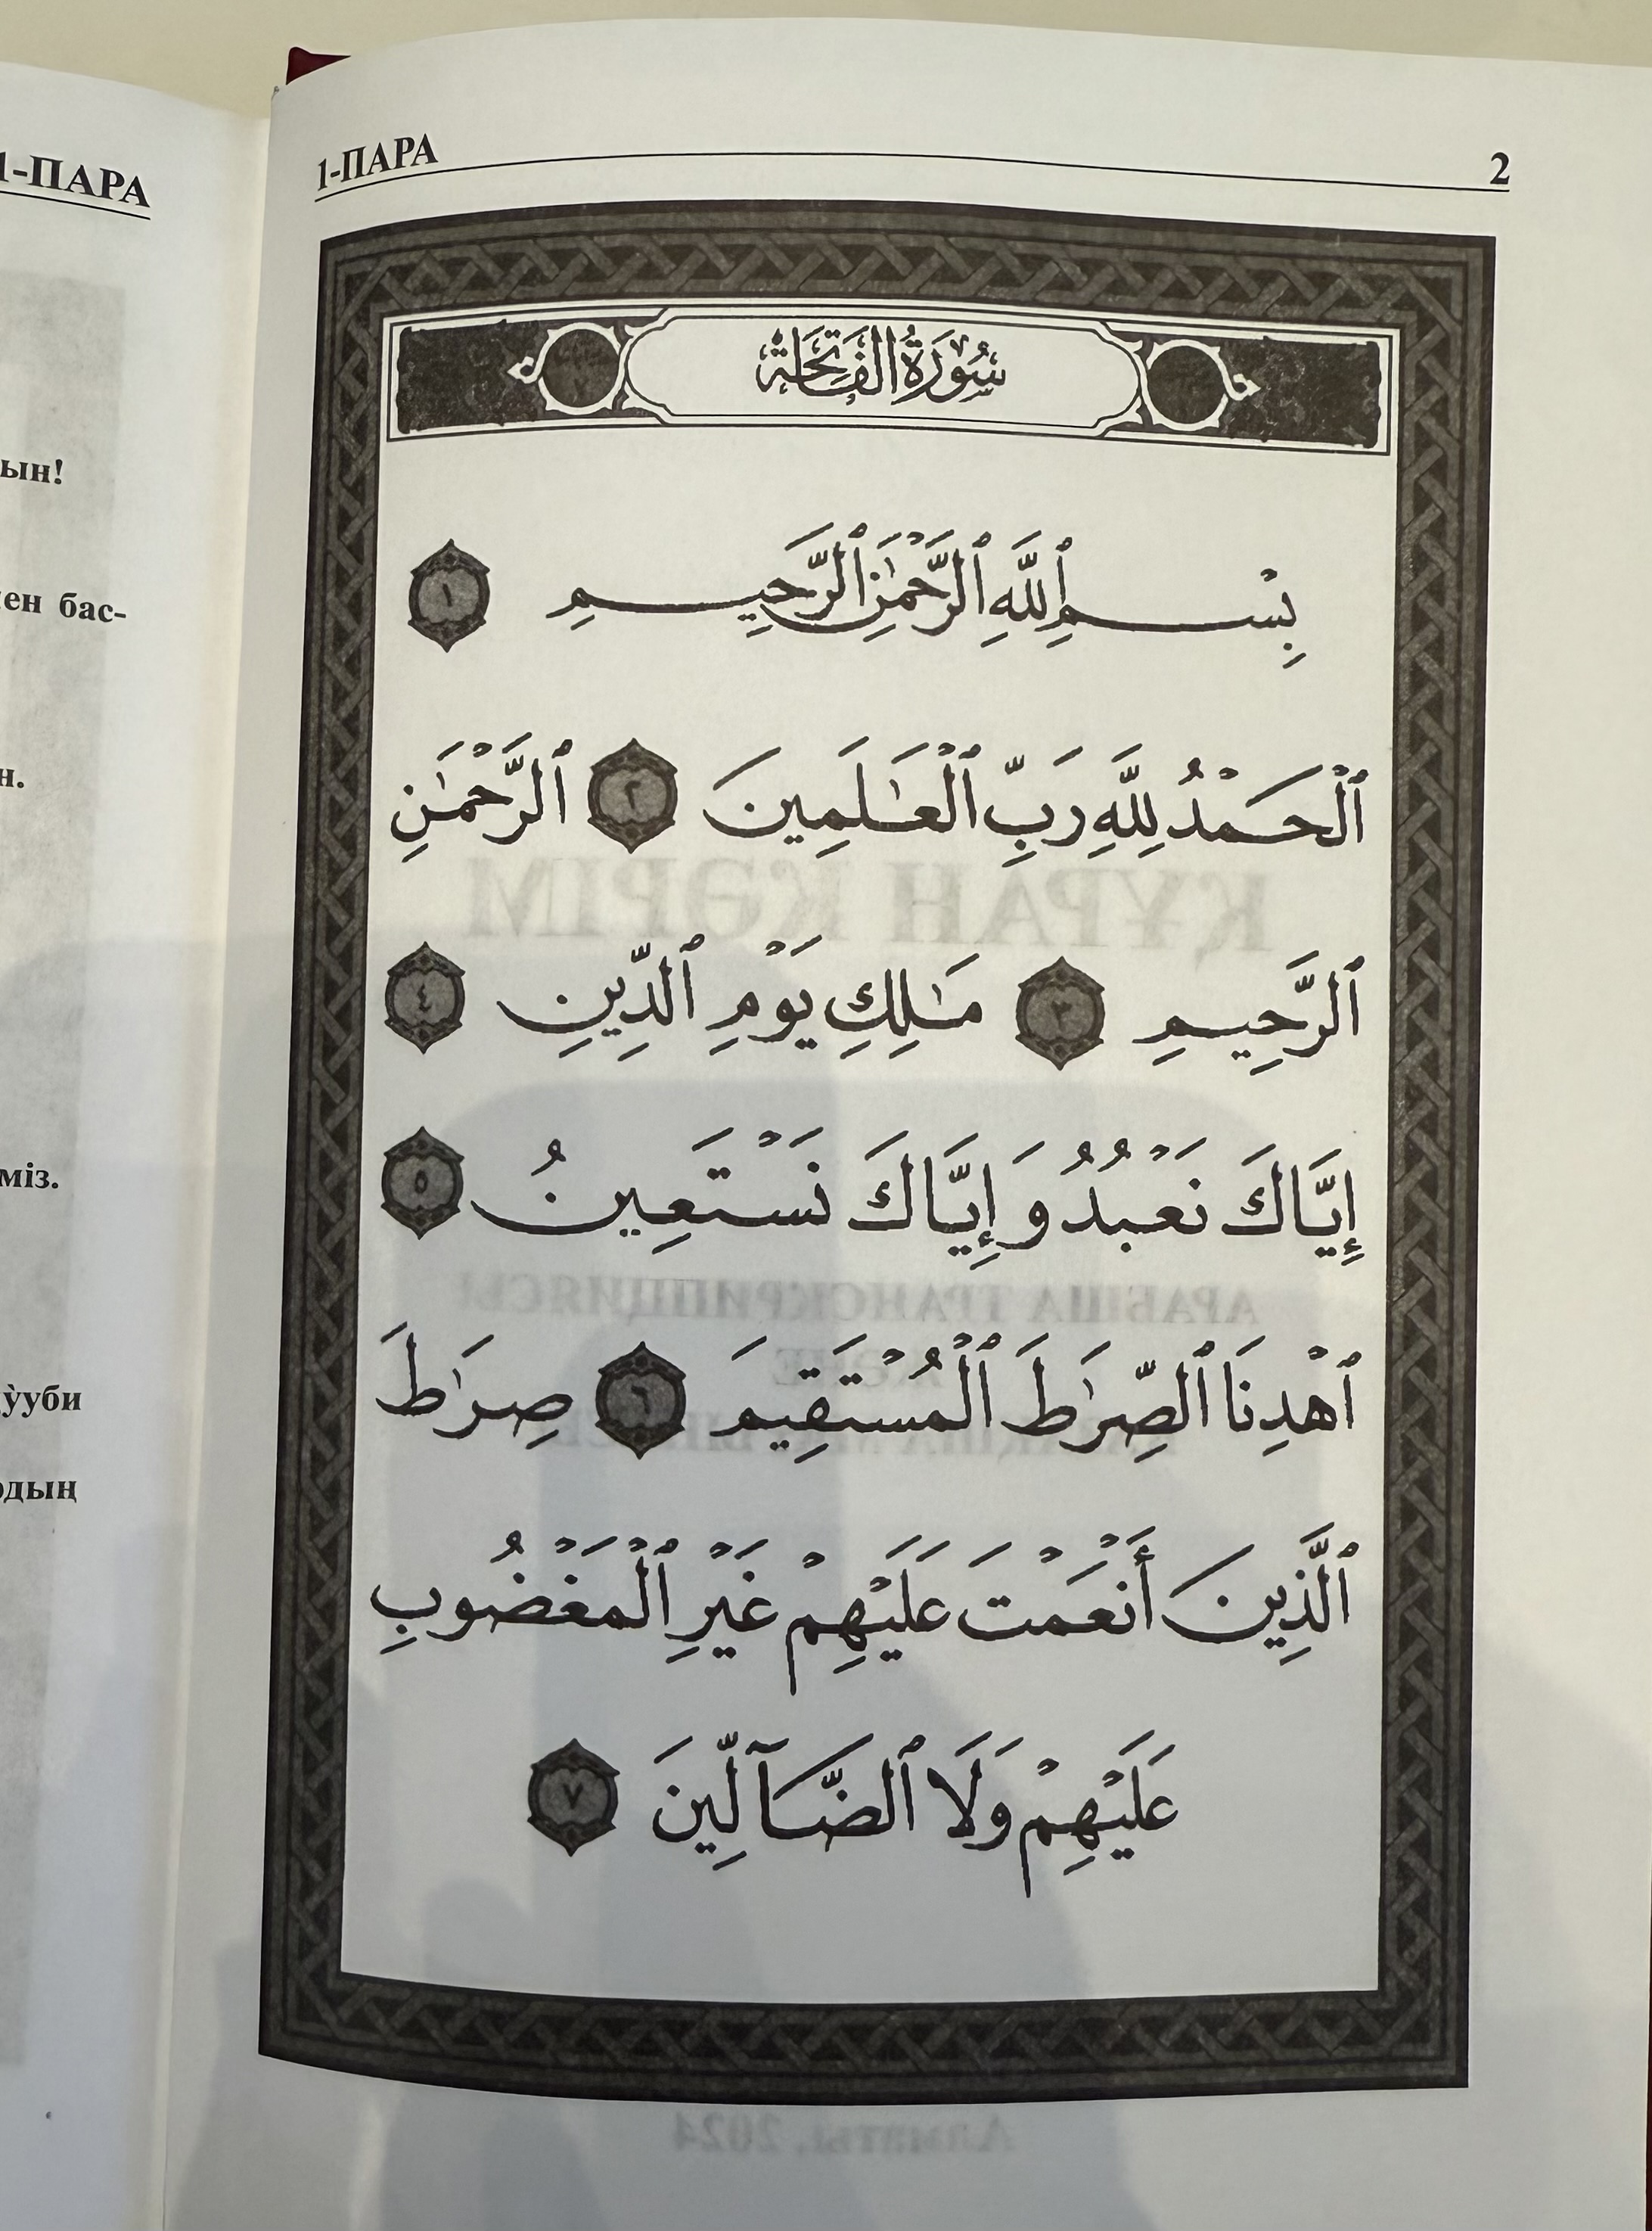 1-ПАРА
ын!
ен бас-
н.
міз.
ууби
рдың
1-ПАРА 2
سُورَةُ الفَاتِحَة
بِسْمِ ٱللَّهِ ٱلرَّحْمَٰنِ ٱلرَّحِيمِ ١
ٱلْحَمْدُ لِلَّهِ رَبِّ ٱلْعَٰلَمِينَ ٢ ٱلرَّحْمَٰنِ
ٱلرَّحِيمِ ٣ مَٰلِكِ يَوْمِ ٱلدِّينِ ٤
إِيَّاكَ نَعْبُدُ وَإِيَّاكَ نَسْتَعِينُ ٥
ٱهْدِنَا ٱلصِّرَٰطَ ٱلْمُسْتَقِيمَ ٦ صِرَٰطَ
ٱلَّذِينَ أَنْعَمْتَ عَلَيْهِمْ غَيْرِ ٱلْمَغْضُوبِ
عَلَيْهِمْ وَلَا ٱلضَّآلِّينَ ٧
ҚҰРАН КӘРІМ
АРАБША ТРАНСКРИПЦИЯСЫ
Алматы, 2024